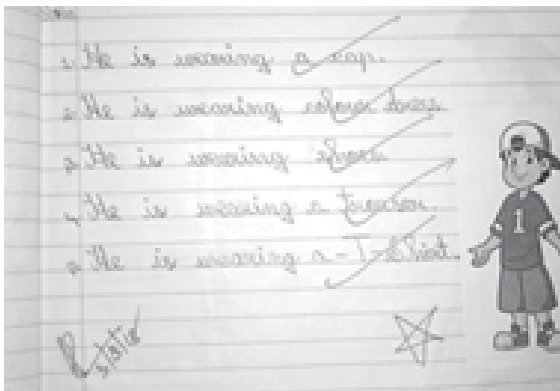 1. He is wearing a cap.
2. He is wearing
3. He is wearing shoes.
4. He is wearing a trouser.
5. He is wearing a-T-Shirt.
1